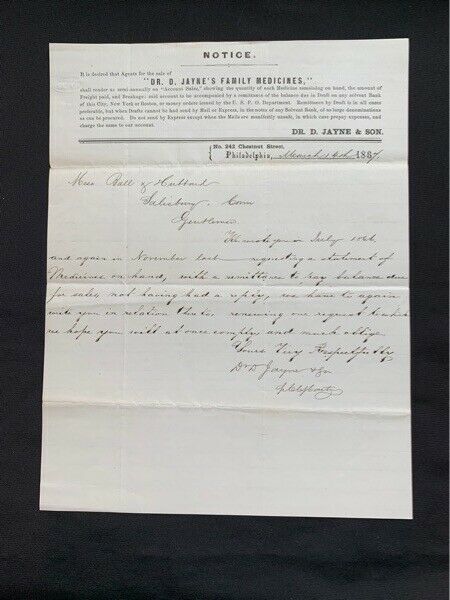 NOTICE.
It is desired that Agents for the sale of
"DR. D. JAYNE'S FAMILY MEDICINES,"
shall render us semi-annually an "Account Sales," showing the quantity of each Medicine remaining on hand, the amount of
Freight paid, and Breakage; said account to be accompanied by a remittance of the balance due in Draft on any solvent Bank
of this City, New York or Boston, or money orders issued by the U. S. P. O. Department. Remittance by Draft is in all cases
preferable, but when Drafts cannot be had send by Mail or Express, in the notes of any Solvent Bank, of as large denominations
as can be procured. Do not send by Express except when the Mails are manifestly unsafe, in which case prepay expenses, and
charge the same to our account.
DR. D. JAYNE & SON.
No. 242 Chestnut Street,
Philadelphia, March 1867.
Mess Ball & Hubbard
Salisbury. Conn
Gentlemen
We wrote you in July 1866
and again in November last requesting a statement of
Medicines on hand, with a remittance to pay balance due
for sales, not having had a reply, we have to again
write you in relation thereto, renewing our request to which
we hope you will at once comply, and much oblige
Yours Very Respectfully
Dr D Jayne & Son